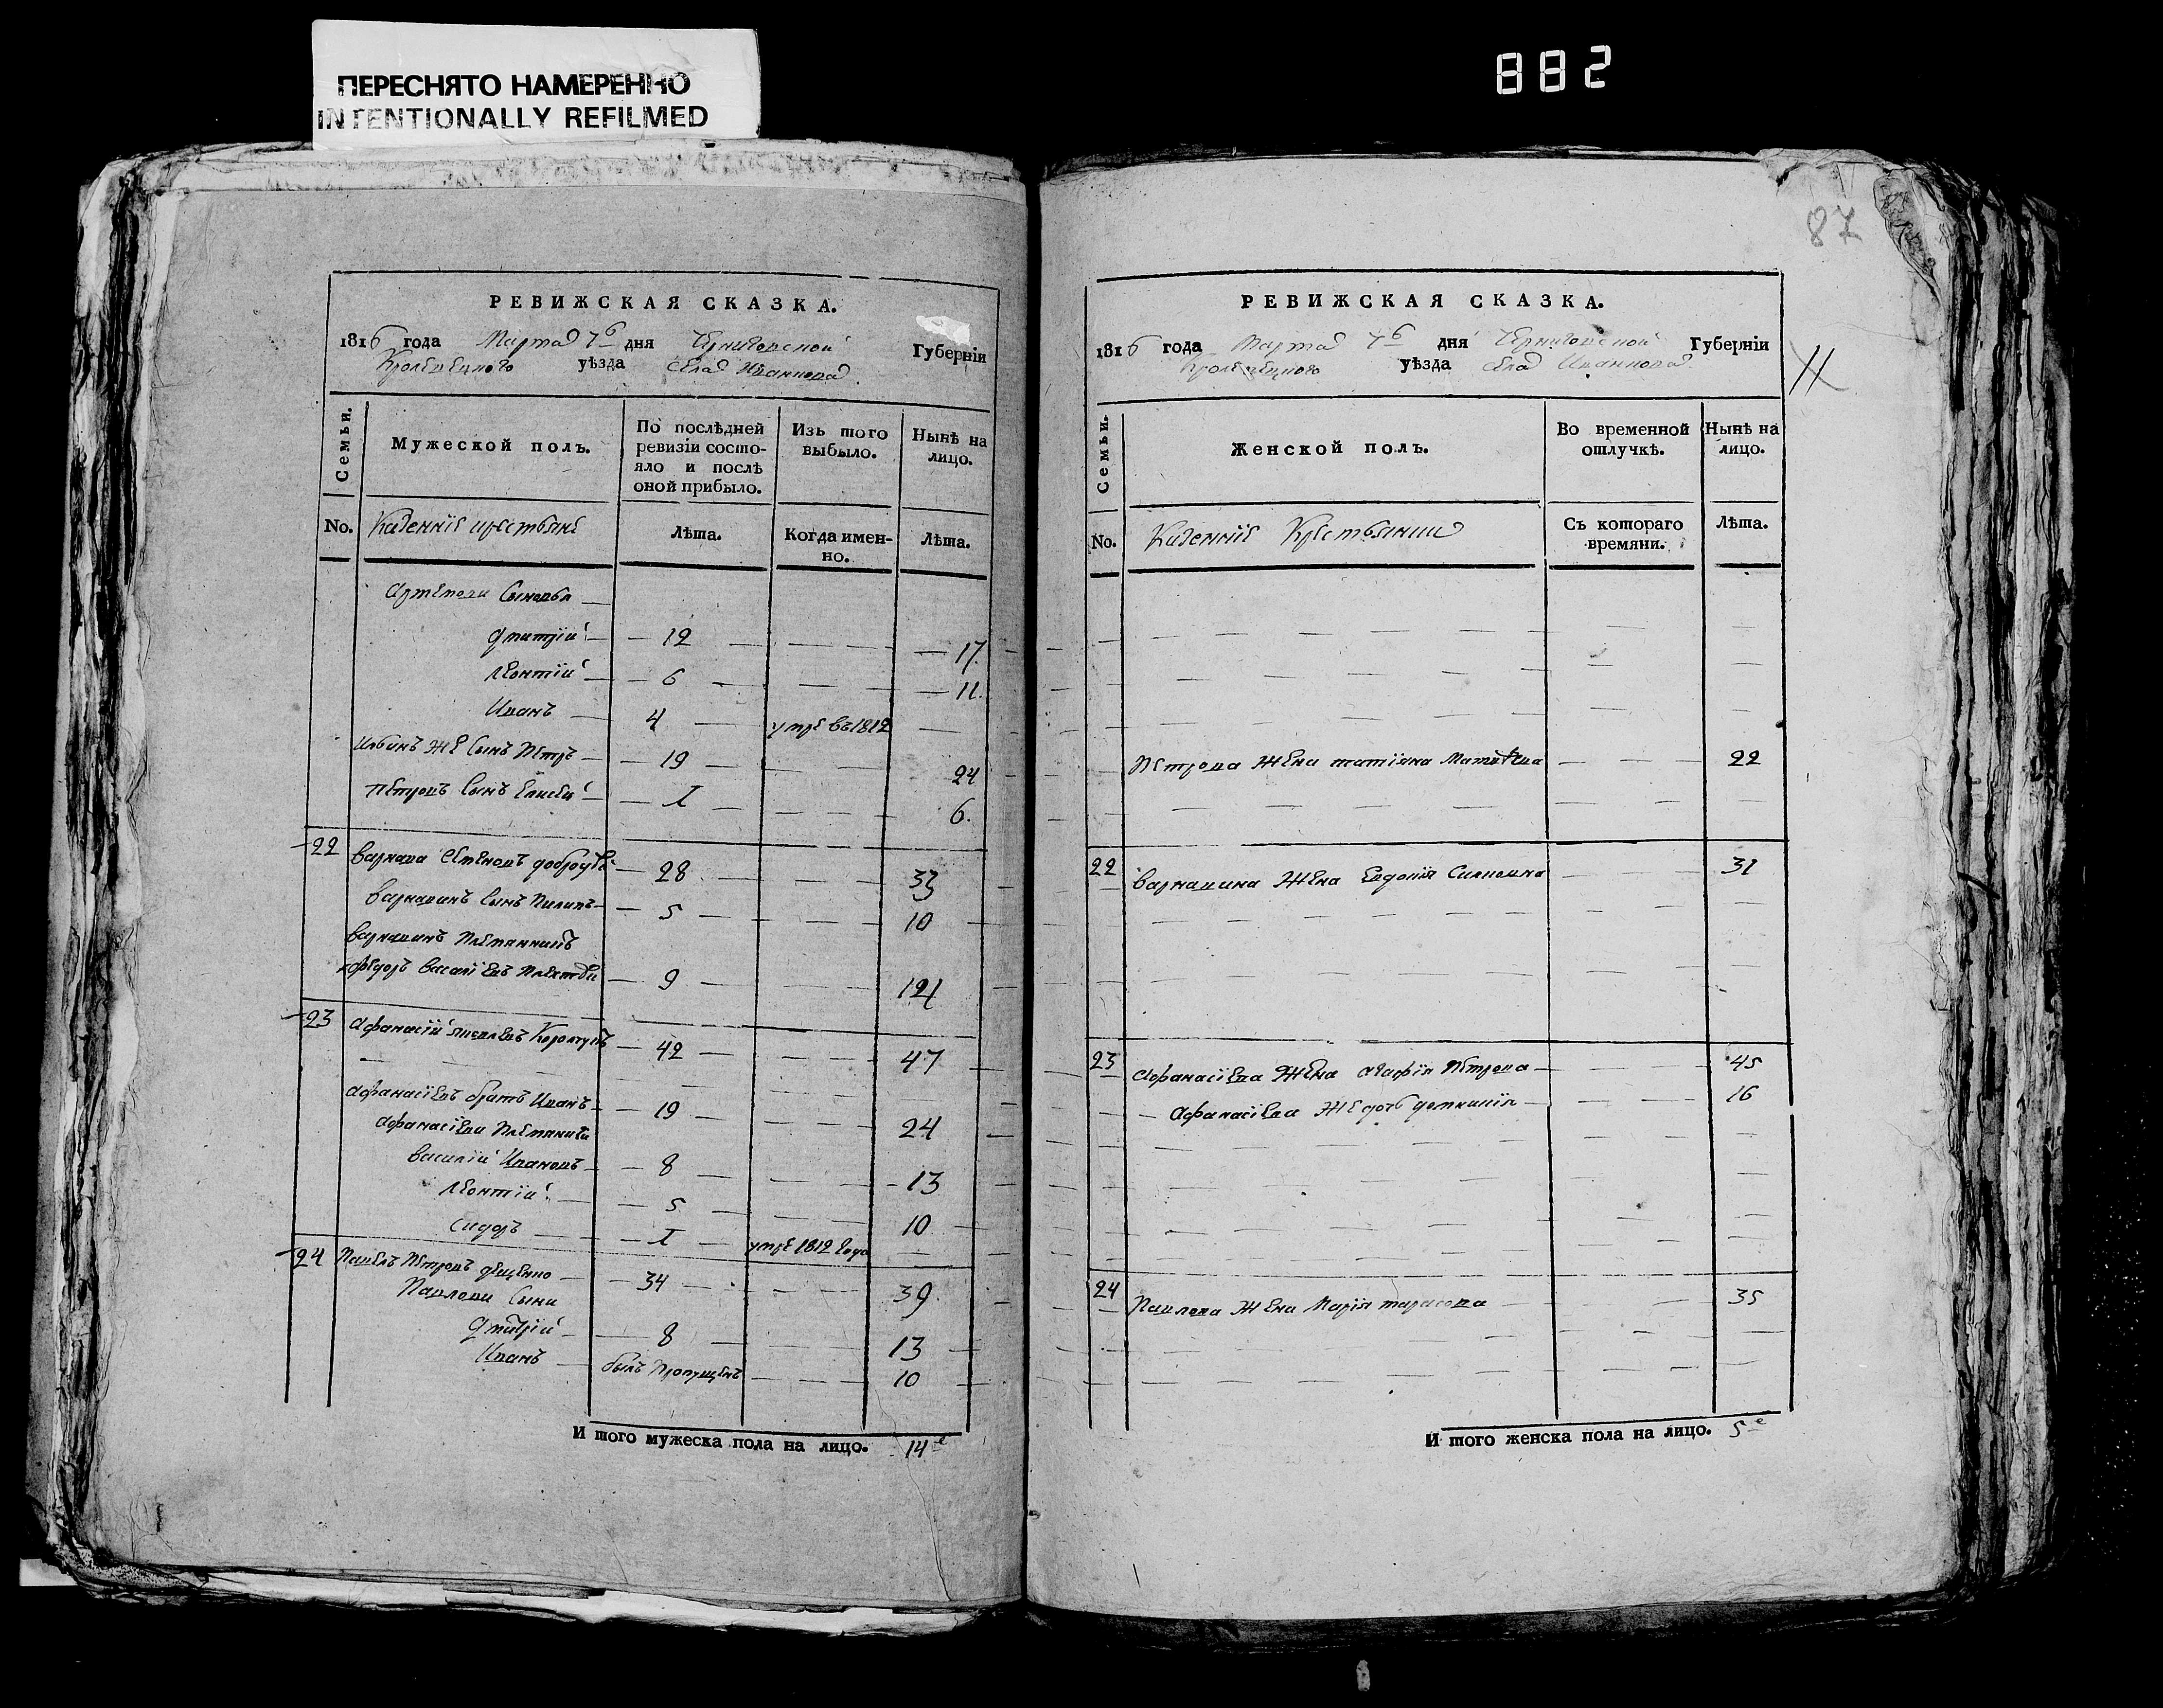 ПЕРЕСНЯТО НАМЕРЕННО
INTENTIONALLY REFILMED
882
87
РЕВИЖСКАЯ СКАЗКА.
1816 года Марта 7го дня Черниговской Губерніи
Кролевецкого уѣзда села Иванкова
Семьи.
Мужеской полъ.
По послѣдней ревизіи состояло и послѣ оной прибыло.
Изъ того выбыло.
Нынѣ на лицо.
No.
Казеннiе крестьяне
Лѣта.
Когда именно.
Лѣта.
Артемови Сыновья
Дмитрій 12 17
Леонтій 6 11.
Иванъ 4 умре въ 1812
Ильинъ же Сынъ Петръ 19 24
Петровъ Сынъ Елисей 1 6.
22 Варнава Семеновъ 28 33
Варнавинъ Сынъ Пилипъ 5 10
Варнавинъ Племянникъ
Федоръ Василіевъ 9 14
23 Афанасій Яковлевъ 42 47
Афанасіевъ братъ Иванъ 19 24
Афанасіеви Племяники
Василій Ивановъ 8 13
Леонтій 5 10
Сидоръ 1 умре 1812 года
24 Павелъ Петровъ Дещенко 34 39
Павлови Сыни
Дмитрій 8 13
Иванъ былъ пропущенъ 10
И того мужеска пола на лицо. 14е
РЕВИЖСКАЯ СКАЗКА.
1816 года Марта 7го дня Черниговской Губерніи
Кролевецкого уѣзда села Иванкова
Семьи.
Женской полъ.
Во временной отлучкѣ.
Нынѣ на лицо.
No.
Казеннiе Крестьянки
Съ котораго времяни.
Лѣта.
Петрова жена татіяна Матвѣева 22
22 Варнавина жена Евдокія 31
23 Афанасіева жена Агафія Петрова 45
Афанасіева же дочь Домникія 16
24 Павлова жена Марія тарасова 35
И того женска пола на лицо. 5е